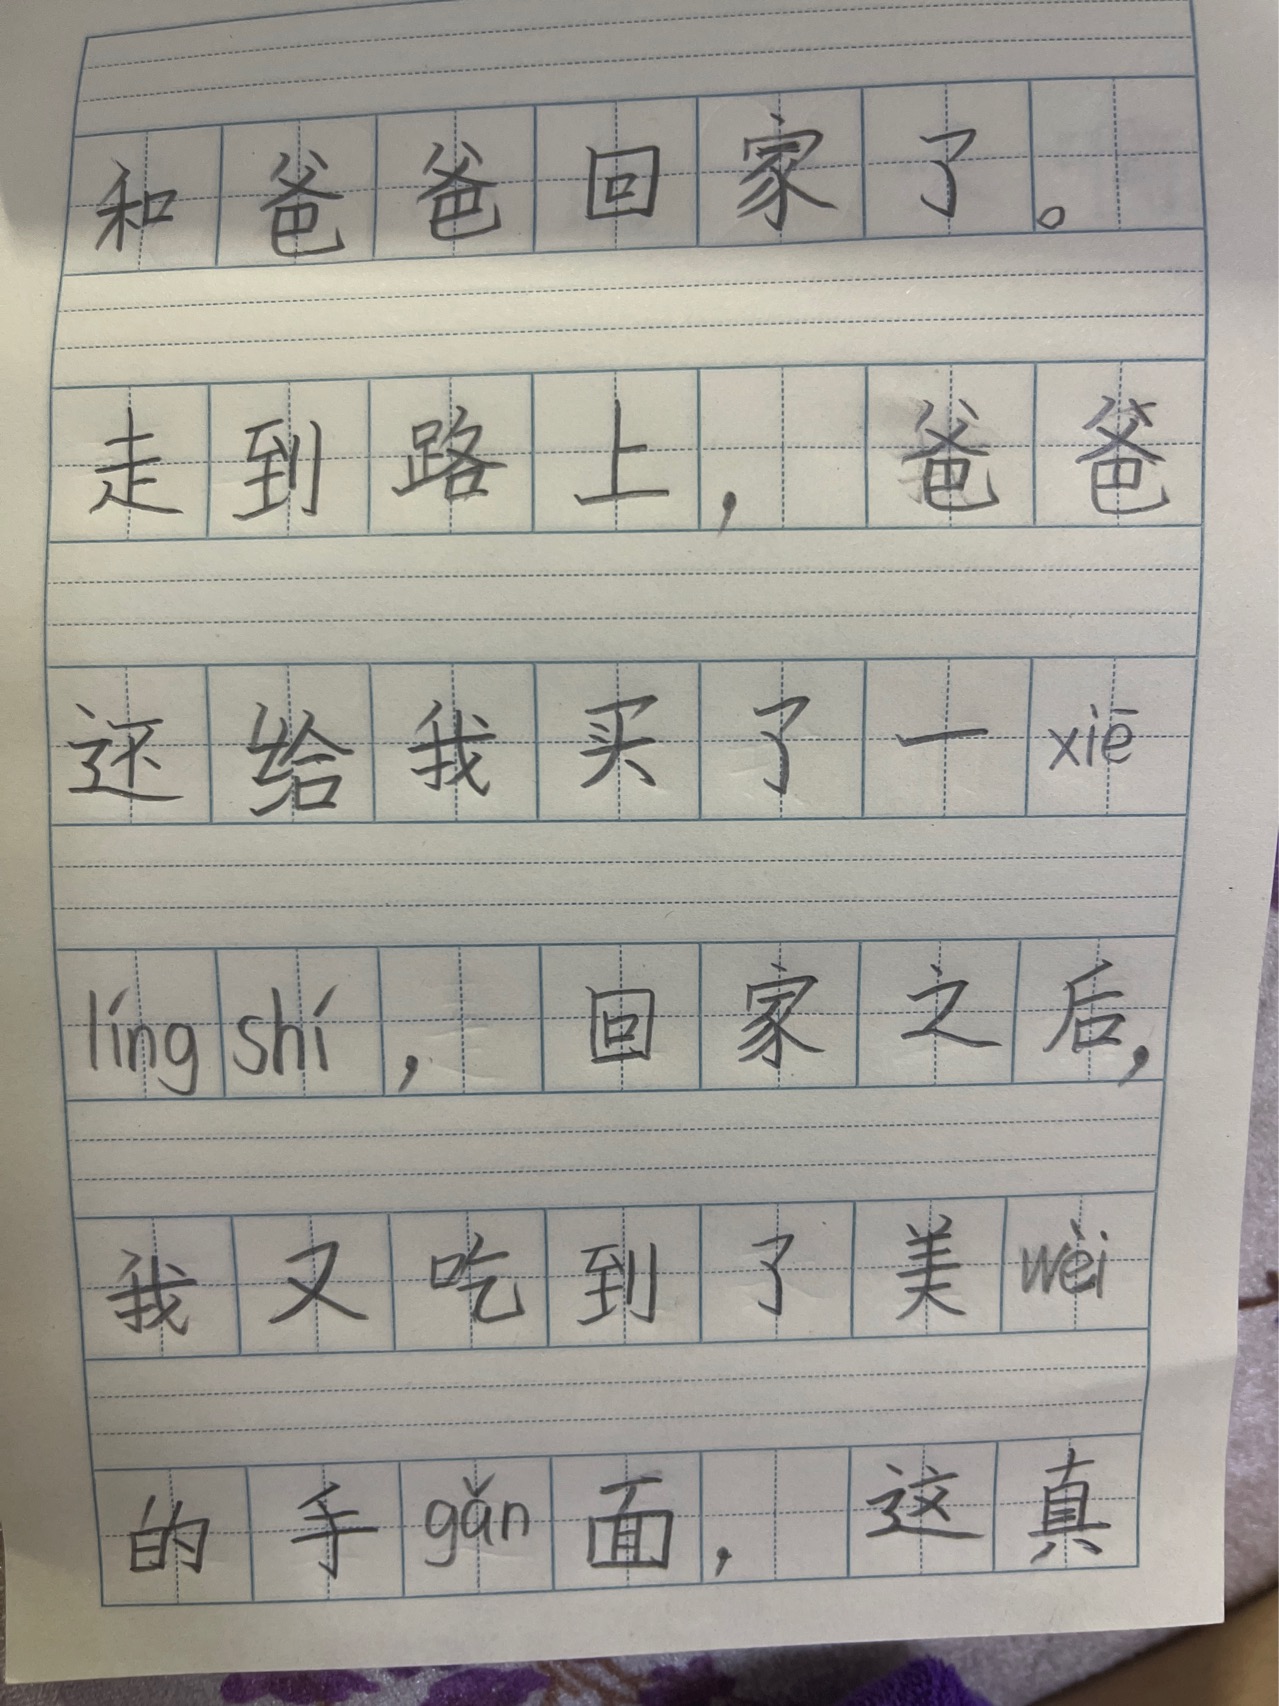 和爸爸回家了。
走到路上，爸爸
还给我买了一xiē
líng shí，回家之后，
我又吃到了美wèi
的手gǎn面，这真